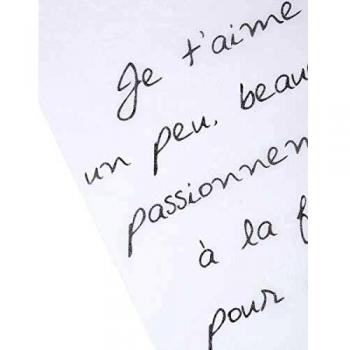 Je t'aime
un peu, beau
passionnem
à la f
pour